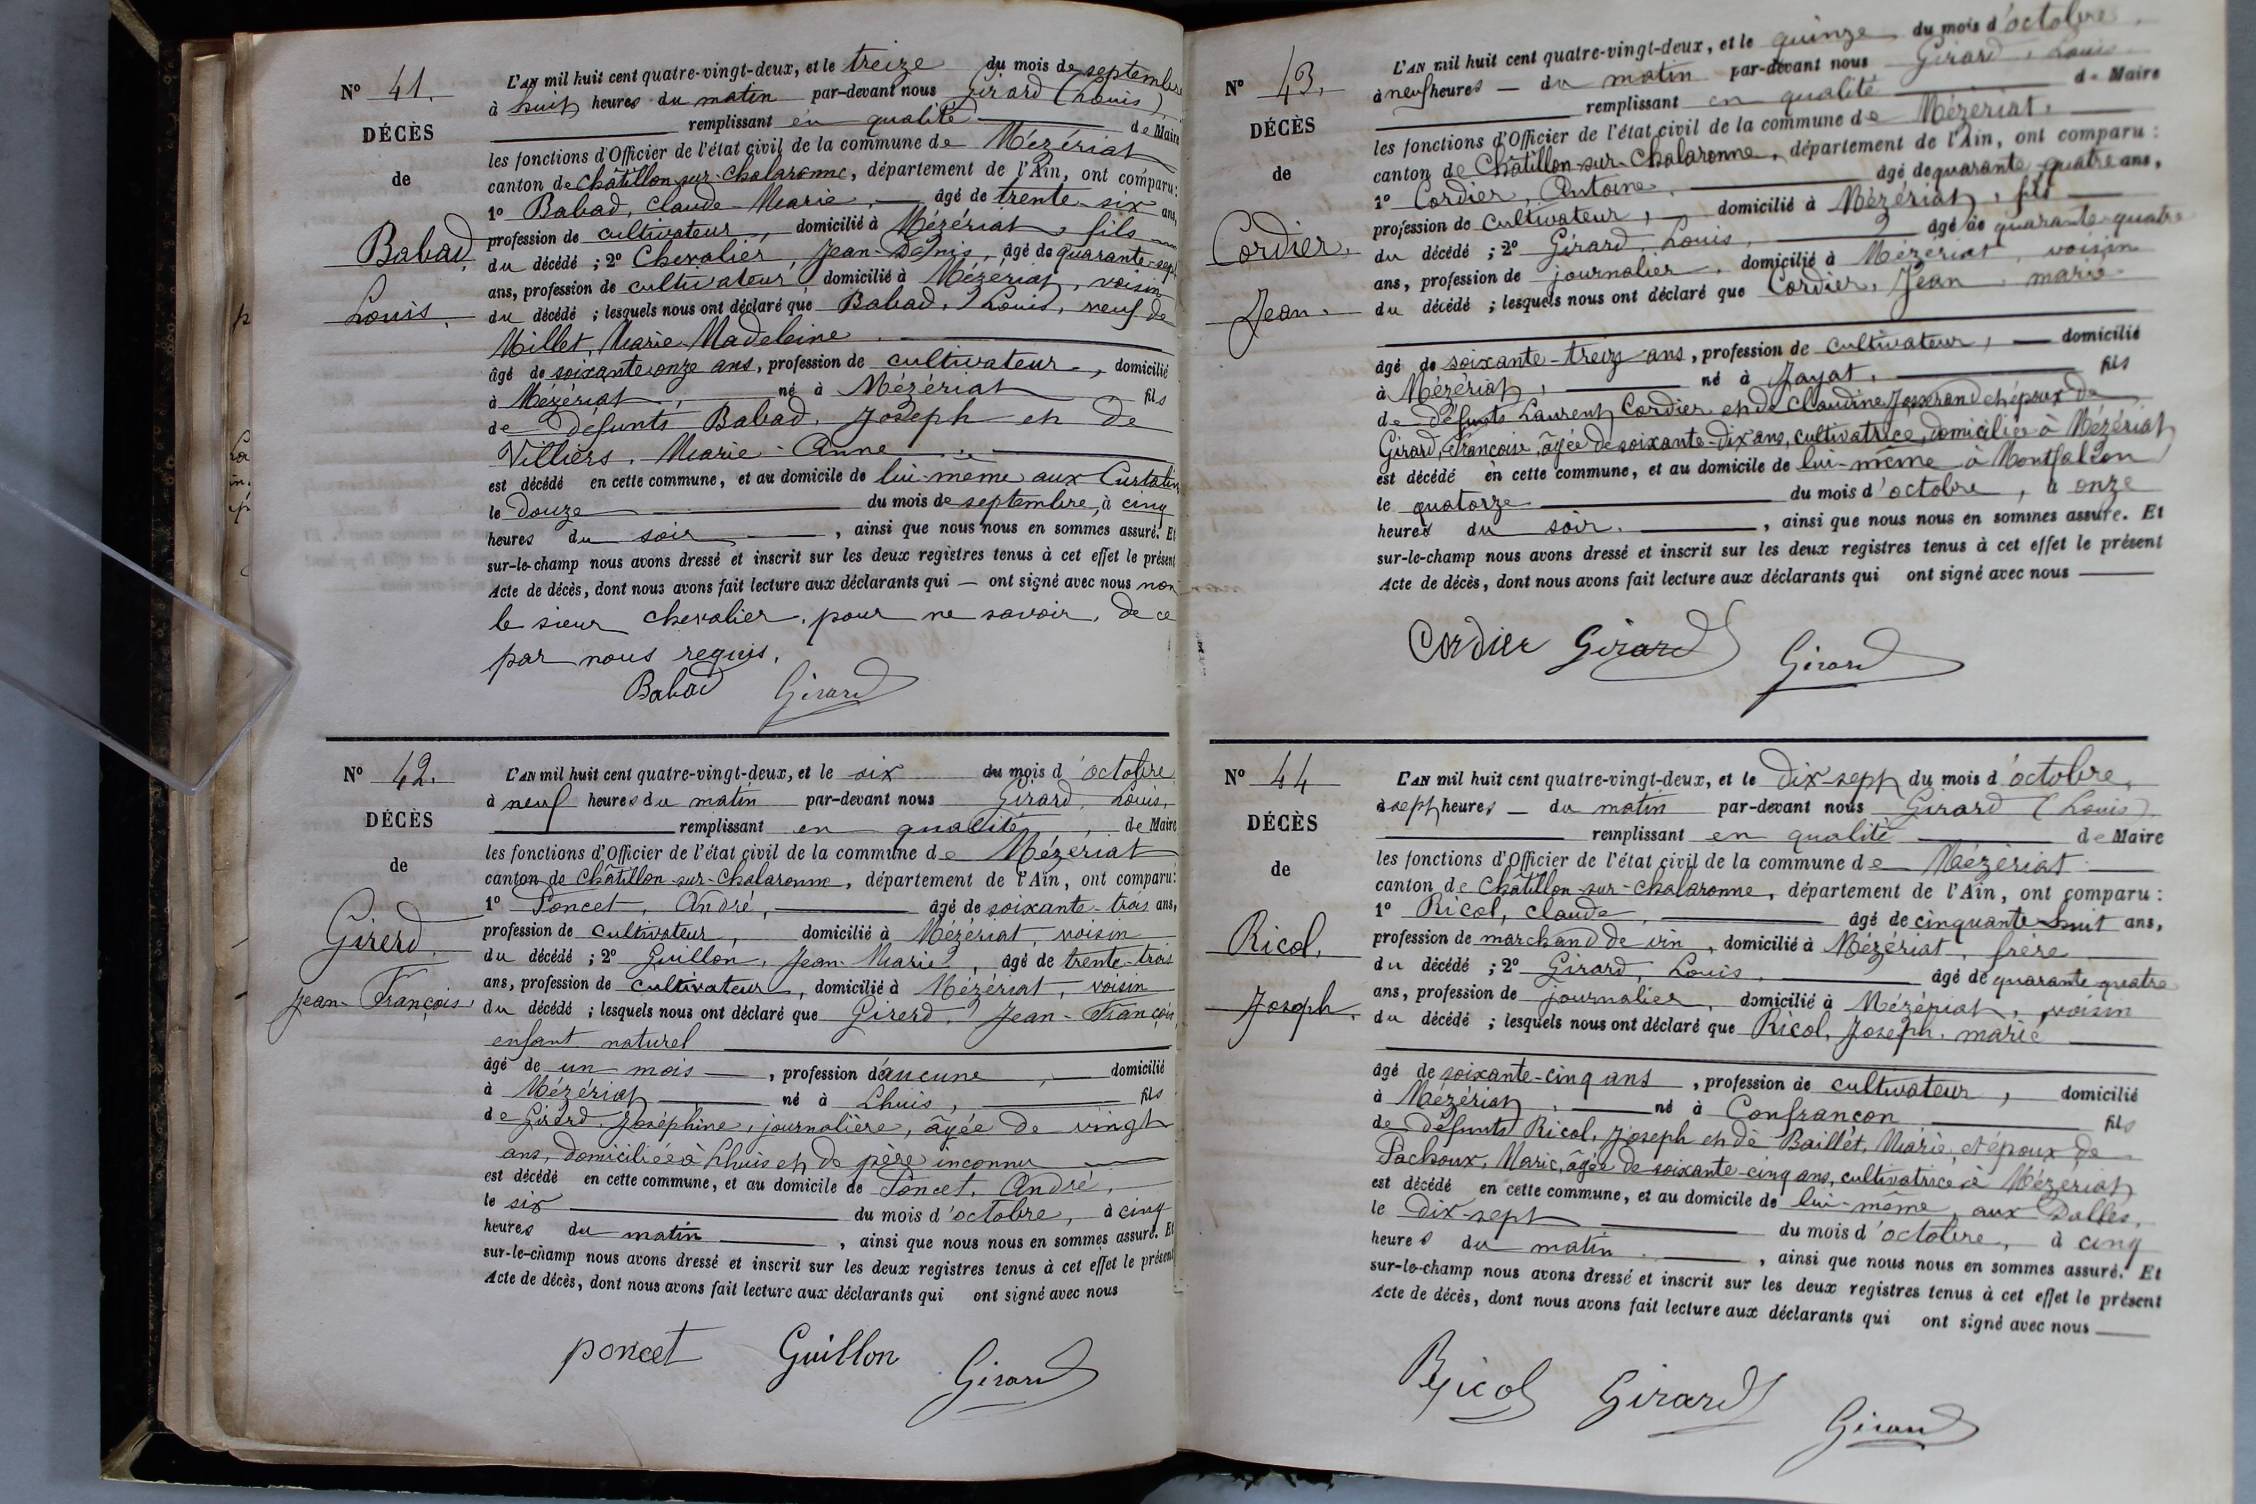 N° 41.
DÉCÈS
de
Babad
Louis.
L'AN mil huit cent quatre-vingt-deux, et le treize du mois de septembre
à huit heures du matin par-devant nous Girard (Louis),
remplissant en qualité de Maire
les fonctions d'Officier de l'état civil de la commune de Mézériat
canton de Châtillon-sur-Chalaronne, département de l'Ain, ont comparu:
1° Babad, Claude-Marie, âgé de trente-six ans,
profession de cultivateur, domicilié à Mézériat, fils
du décédé ; 2° Chevalier, Jean-Denis, âgé de quarante-sept
ans, profession de cultivateur, domicilié à Mézériat, voisin
du décédé ; lesquels nous ont déclaré que Babad, Louis, veuf de
Millet, Marie Madeleine
âgé de soixante onze ans, profession de cultivateur, domicilié
à Mézériat, né à Mézériat fils
de défunts Babad, Joseph et de
Villiers, Marie-Anne
est décédé en cette commune, et au domicile de lui-même aux
le douze du mois de septembre, à cinq
heures du soir, ainsi que nous nous en sommes assuré. Et
sur-le-champ nous avons dressé et inscrit sur les deux registres tenus à cet effet le présent
Acte de décès, dont nous avons fait lecture aux déclarants qui — ont signé avec nous non
le sieur Chevalier, pour ne savoir, de ce
par nous requis.
Babad Girard
N° 42.
DÉCÈS
de
Girerd
Jean-François
L'AN mil huit cent quatre-vingt-deux, et le six du mois d'octobre
à neuf heures du matin par-devant nous Girard, Louis,
remplissant en qualité, de Maire
les fonctions d'Officier de l'état civil de la commune de Mézériat
canton de Châtillon-sur-Chalaronne, département de l'Ain, ont comparu:
1° Poncet, André, âgé de soixante-trois ans,
profession de cultivateur, domicilié à Mézériat, voisin
du décédé ; 2° Guillon, Jean-Marie, âgé de trente-trois
ans, profession de cultivateur, domicilié à Mézériat, voisin
du décédé ; lesquels nous ont déclaré que Girerd, Jean-François
enfant naturel
âgé de un mois, profession d'aucune, domicilié
à Mézériat né à Lhuis, fils
de Girerd, Joséphine, journalière, âgée de vingt
ans, domiciliée à Lhuis et de père inconnu
est décédé en cette commune, et au domicile de Poncet, André,
le six du mois d'octobre, à cinq
heures du matin, ainsi que nous nous en sommes assuré. Et
sur-le-champ nous avons dressé et inscrit sur les deux registres tenus à cet effet le présent
Acte de décès, dont nous avons fait lecture aux déclarants qui ont signé avec nous
poncet Guillon Girard
N° 43.
DÉCÈS
de
Cordier,
Jean.
L'AN mil huit cent quatre-vingt-deux, et le quinze du mois d'octobre
à neuf heures — du matin par-devant nous Girard, Louis
remplissant en qualité de Maire
les fonctions d'Officier de l'état civil de la commune de Mézériat.
canton de Châtillon-sur-Chalaronne, département de l'Ain, ont comparu :
1° Cordier, Antoine, âgé de quarante-quatre ans,
profession de cultivateur, domicilié à Mézériat, fils
du décédé ; 2° Girard, Louis, âgé de quarante-quatre
ans, profession de journalier, domicilié à Mézériat, voisin
du décédé ; lesquels nous ont déclaré que Cordier, Jean, marié
âgé de soixante-treize ans, profession de cultivateur, domicilié
à Mézériat, né à Jayat, fils
de défunts Laurent Cordier et de Claudine Josserand et époux de
Girard, Françoise, âgée de soixante-dix ans, cultivatrice, domiciliée à Mézériat
est décédé en cette commune, et au domicile de lui-même à Montfalcon
le quatorze du mois d'octobre, à onze
heures du soir, ainsi que nous nous en sommes assuré. Et
sur-le-champ nous avons dressé et inscrit sur les deux registres tenus à cet effet le présent
Acte de décès, dont nous avons fait lecture aux déclarants qui ont signé avec nous
Cordier Girard Girard
N° 44
DÉCÈS
de
Ricol,
Joseph,
L'AN mil huit cent quatre-vingt-deux, et le dix-sept du mois d'octobre,
à sept heures — du matin par-devant nous Girard (Louis)
remplissant en qualité de Maire
les fonctions d'Officier de l'état civil de la commune de Mézériat
canton de Châtillon-sur-Chalaronne, département de l'Ain, ont comparu :
1° Ricol, Claude, âgé de cinquante-huit ans,
profession de marchand de vin, domicilié à Mézériat, frère
du décédé ; 2° Girard, Louis, âgé de quarante quatre
ans, profession de journalier, domicilié à Mézériat, voisin
du décédé ; lesquels nous ont déclaré que Ricol, Joseph, marié
âgé de soixante-cinq ans, profession de cultivateur, domicilié
à Mézériat, né à Confrançon fils
de défunts Ricol, Joseph et de Baillet, Marie, et époux de
Pachoux, Marie, âgée de soixante-cinq ans, cultivatrice à Mézériat
est décédé en cette commune, et au domicile de lui-même, aux Dalles,
le dix-sept du mois d'octobre, à cinq
heures du matin, ainsi que nous nous en sommes assuré. Et
sur-le-champ nous avons dressé et inscrit sur les deux registres tenus à cet effet le présent
Acte de décès, dont nous avons fait lecture aux déclarants qui ont signé avec nous
Ricol Girard Girard